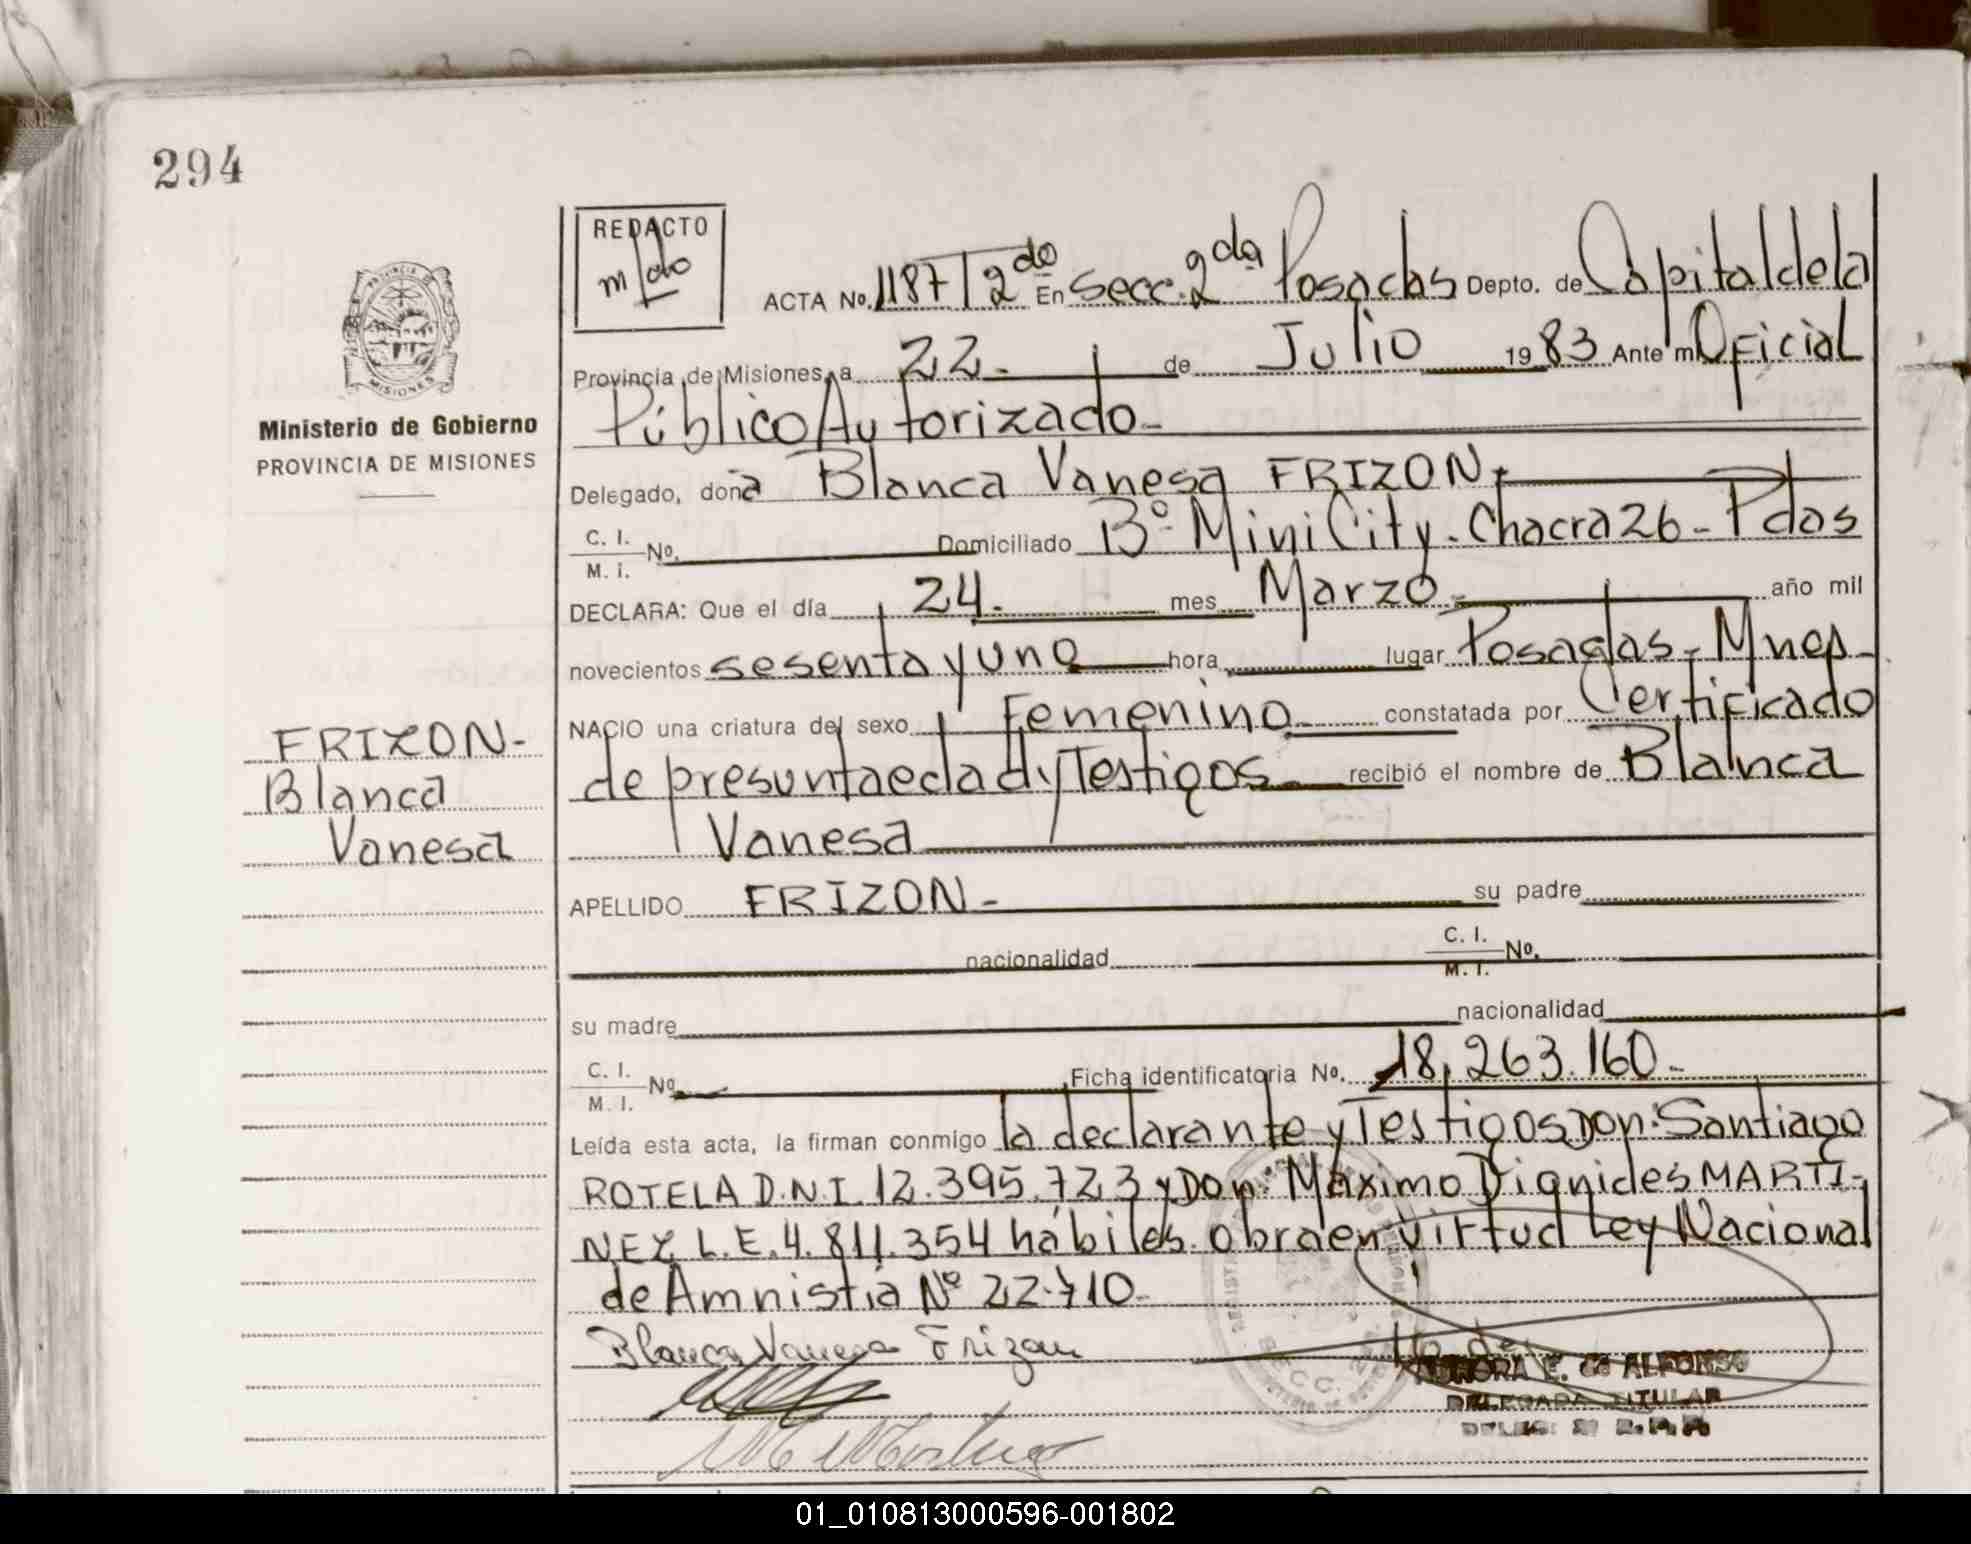 294
REDACTO
ACTA No. 1187 T 2do En Secc. 2da Posadas Depto. de Capital de la
Provincia de Misiones, a 22.- de Julio 1983 Ante mi Oficial
Público Autorizado.-
Ministerio de Gobierno
PROVINCIA DE MISIONES
PROVINCIA
MISIONES
Delegado, doña Blanca Vanesa FRIZON,
C. I.
M. i. No. Domiciliado Bº Mini City - Chacra 26 - Pdas
DECLARA: Que el día 24. mes Marzo.- año mil
novecientos sesenta y uno hora lugar Posadas, Mnes.
NACIO una criatura del sexo Femenino constatada por Certificado
de presunta edad y Testigos recibió el nombre de Blanca
Vanesa
FRIZON-
Blanca
Vanesa
APELLIDO FRIZON - su padre
nacionalidad C. I.
M. I. No.
su madre nacionalidad
C. I.
M. I. No Ficha identificatoria No. 18,263.160.-
Leída esta acta, la firman conmigo la declarante y Testigos Don: Santiago
ROTELA D.N.I. 12.395.723 y Don: Máximo Dignides MARTI-
NEZ L.E.4.811.354 hábiles. Obra en virtud Ley Nacional
de Amnistia Nº 22.710.-
Blanca Vanesa Frizon
E. de ALFONSO
DELEGADA TITULAR
01_010813000596-001802